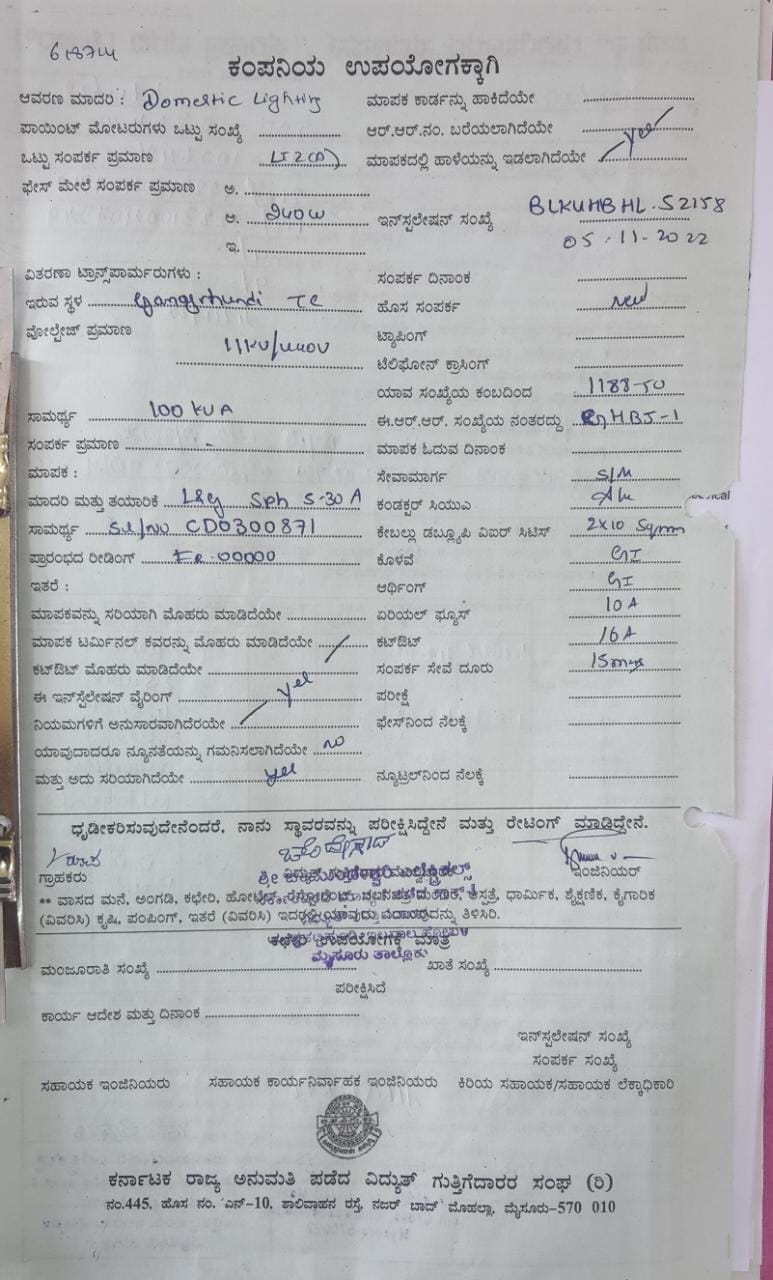 618714
ಕಂಪನಿಯ ಉಪಯೋಗಕ್ಕಾಗಿ
ಆವರಣ ಮಾದರಿ : Domestic Lighting ಮಾಪಕ ಕಾರ್ಡನ್ನು ಹಾಕಿದೆಯೇ
ಪಾಯಿಂಟ್ ಮೋಟರುಗಳು ಒಟ್ಟು ಸಂಖ್ಯೆ ಆರ್.ಆರ್.ನಂ. ಬರೆಯಲಾಗಿದೆಯೇ
ಒಟ್ಟು ಸಂಪರ್ಕ ಪ್ರಮಾಣ LT2(a) ಮಾಪಕದಲ್ಲಿ ಹಾಳೆಯನ್ನು ಇಡಲಾಗಿದೆಯೇ yes
ಫೇಸ್ ಮೇಲೆ ಸಂಪರ್ಕ ಪ್ರಮಾಣ ಅ.
ಆ. 240W ಇನ್‌ಸ್ಪಲೇಷನ್ ಸಂಖ್ಯೆ BLKUHBHL.52158
ಇ. 05-11-2022
ವಿತರಣಾ ಟ್ರಾನ್ಸ್‌ಪಾರ್ಮರುಗಳು : ಸಂಪರ್ಕ ದಿನಾಂಕ
ಇರುವ ಸ್ಥಳ TC ಹೊಸ ಸಂಪರ್ಕ New
ವೋಲ್ಟೇಜ್ ಪ್ರಮಾಣ 11KV/440V ಟ್ಯಾಪಿಂಗ್
ಟೆಲಿಫೋನ್ ಕ್ರಾಸಿಂಗ್
ಯಾವ ಸಂಖ್ಯೆಯ ಕಂಬದಿಂದ 1188-50
ಸಾಮರ್ಥ್ಯ 100 KVA ಈ.ಆರ್.ಆರ್. ಸಂಖ್ಯೆಯ ನಂತರದ್ದು HB5-1
ಸಂಪರ್ಕ ಪ್ರಮಾಣ - ಮಾಪಕ ಓದುವ ದಿನಾಂಕ
ಮಾಪಕ : ಸೇವಾಮಾರ್ಗ S/M
ಮಾದರಿ ಮತ್ತು ತಯಾರಿಕೆ L&G Sph 5-30 A ಕಂಡಕ್ಟರ್ ಸಿಯುಎ
ಸಾಮರ್ಥ್ಯ Sl/No CD0300871 ಕೇಬಲ್ಲು ಡಬ್ಲ್ಯೂಪಿ ವಿಐರ್ ಸಿಟಿಸ್ 2x10 Sqmm
ಪ್ರಾರಂಭದ ರೀಡಿಂಗ್ FR.00000 ಕೊಳವೆ GI
ಇತರೆ : ಆರ್ಥಿಂಗ್ GI
ಮಾಪಕವನ್ನು ಸರಿಯಾಗಿ ಮೊಹರು ಮಾಡಿದೆಯೇ ಏರಿಯಲ್ ಫ್ಯೂಸ್ 10A
ಮಾಪಕ ಟರ್ಮಿನಲ್ ಕವರನ್ನು ಮೊಹರು ಮಾಡಿದೆಯೇ ಕಟ್‌ಔಟ್ 16A
ಕಟ್‌ಔಟ್ ಮೊಹರು ಮಾಡಿದೆಯೇ ಸಂಪರ್ಕ ಸೇವೆ ದೂರು 15mtrs
ಈ ಇನ್‌ಸ್ಟಲೇಷನ್ ವೈರಿಂಗ್ yes ಪರೀಕ್ಷೆ
ನಿಯಮಗಳಿಗೆ ಅನುಸಾರವಾಗಿದೆರಯೇ ಫೇಸ್‌ನಿಂದ ನೆಲಕ್ಕೆ
ಯಾವುದಾದರೂ ನ್ಯೂನತೆಯನ್ನು ಗಮನಿಸಲಾಗಿದೆಯೇ no
ಮತ್ತು ಅದು ಸರಿಯಾಗಿದೆಯೇ yes ನ್ಯೂಟ್ರಲ್‌ನಿಂದ ನೆಲಕ್ಕೆ
ಧೃಡೀಕರಿಸುವುದೇನೆಂದರೆ, ನಾನು ಸ್ಥಾವರವನ್ನು ಪರೀಕ್ಷಿಸಿದ್ದೇನೆ ಮತ್ತು ರೇಟಿಂಗ್ ಮಾಡಿದ್ದೇನೆ.
ಗ್ರಾಹಕರು ಇಂಜಿನಿಯರ್
** ವಾಸದ ಮನೆ, ಅಂಗಡಿ, ಕಛೇರಿ, ಹೋಟೆಲ್, ಆಸ್ಪತ್ರೆ, ಧಾರ್ಮಿಕ, ಶೈಕ್ಷಣಿಕ, ಕೈಗಾರಿಕ
(ವಿವರಿಸಿ) ಕೃಷಿ, ಪಂಪಿಂಗ್, ಇತರೆ (ವಿವರಿಸಿ) ತಿಳಿಸಿರಿ.
ಕಛೇರಿ ಉಪಯೋಗಕ್ಕೆ ಮಾತ್ರ
ಮೈಸೂರು ತಾಲ್ಲೂಕು
ಮಂಜೂರಾತಿ ಸಂಖ್ಯೆ ಖಾತೆ ಸಂಖ್ಯೆ
ಪರೀಕ್ಷಿಸಿದೆ
ಕಾರ್ಯ ಆದೇಶ ಮತ್ತು ದಿನಾಂಕ
ಇನ್‌ಸ್ಪಲೇಷನ್ ಸಂಖ್ಯೆ
ಸಂಪರ್ಕ ಸಂಖ್ಯೆ
ಸಹಾಯಕ ಇಂಜಿನಿಯರು ಸಹಾಯಕ ಕಾರ್ಯನಿರ್ವಾಹಕ ಇಂಜಿನಿಯರು ಕಿರಿಯ ಸಹಾಯಕ/ಸಹಾಯಕ ಲೆಕ್ಕಾಧಿಕಾರಿ
ಕರ್ನಾಟಕ ರಾಜ್ಯ ಅನುಮತಿ ಪಡೆದ ವಿದ್ಯುತ್ ಗುತ್ತಿಗೆದಾರರ ಸಂಘ (ರಿ)
ನಂ.445, ಹೊಸ ನಂ. ಎನ್-10, ಶಾಲಿವಾಹನ ರಸ್ತೆ, ನಜರ್ ಬಾದ್ ಮೊಹಲ್ಲಾ, ಮೈಸೂರು-570 010